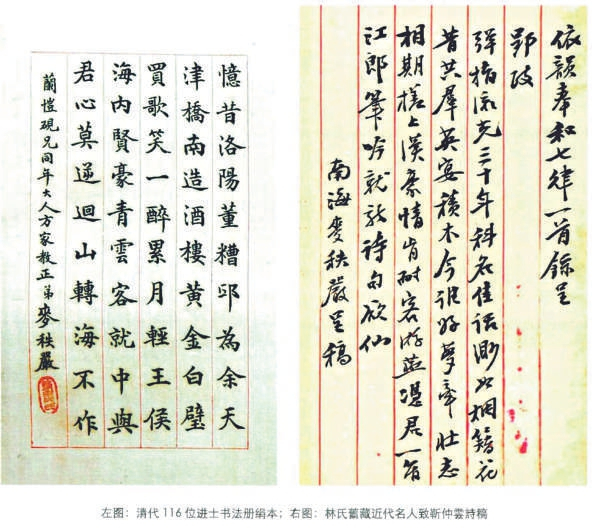 憶昔洛陽董糟邱為余天
津橋南造酒樓黃金白璧
買歌笑一醉累月輕王侯
海內賢豪青雲客就中與
君心莫逆迴山轉海不作
蘭愷硯兄同年大人方家教正弟麥秩嚴
依韻奉和七律一首錄呈
郢政
弹指流光三十年科名佳話渺如烟簪花
昔共羣英宴積木今好夢牽壯志
相期槎上漢豪情肯耐客游燕憑君一管
江郎筆吟就新詩句欲仙
南海麥秩嚴呈稿
左图：清代 116 位进士书法册绢本；右图：林氏舊藏近代名人致靳仲雲詩稿